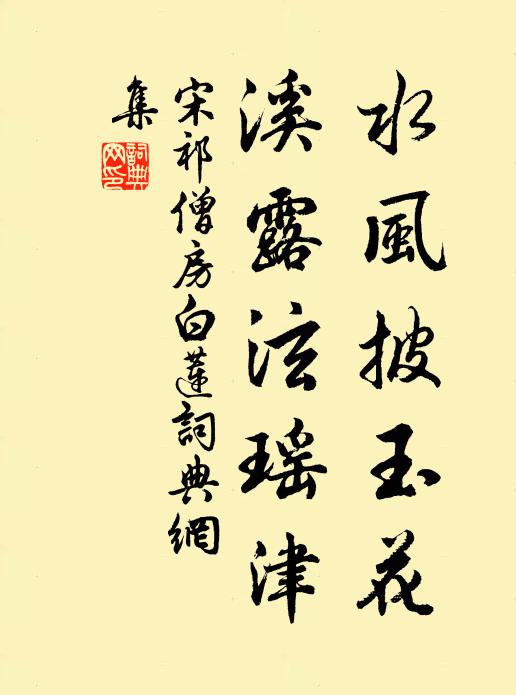 水風披玉花
溪露泫瑶津
宋祁僧房白蓮詞典網
集
詞典
网印